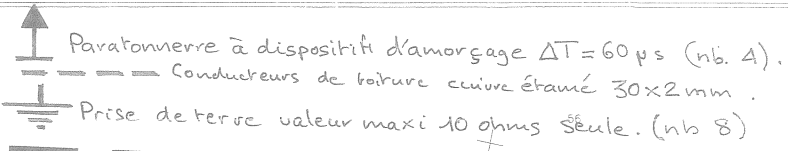 Paratonnerre à dispositif d'amorçage ΔT = 60 µs (nb. 4).
Conducteurs de toiture cuivre étamé 30x2 mm.
Prise de terre valeur maxi 10 ohms seule. (nb 8)